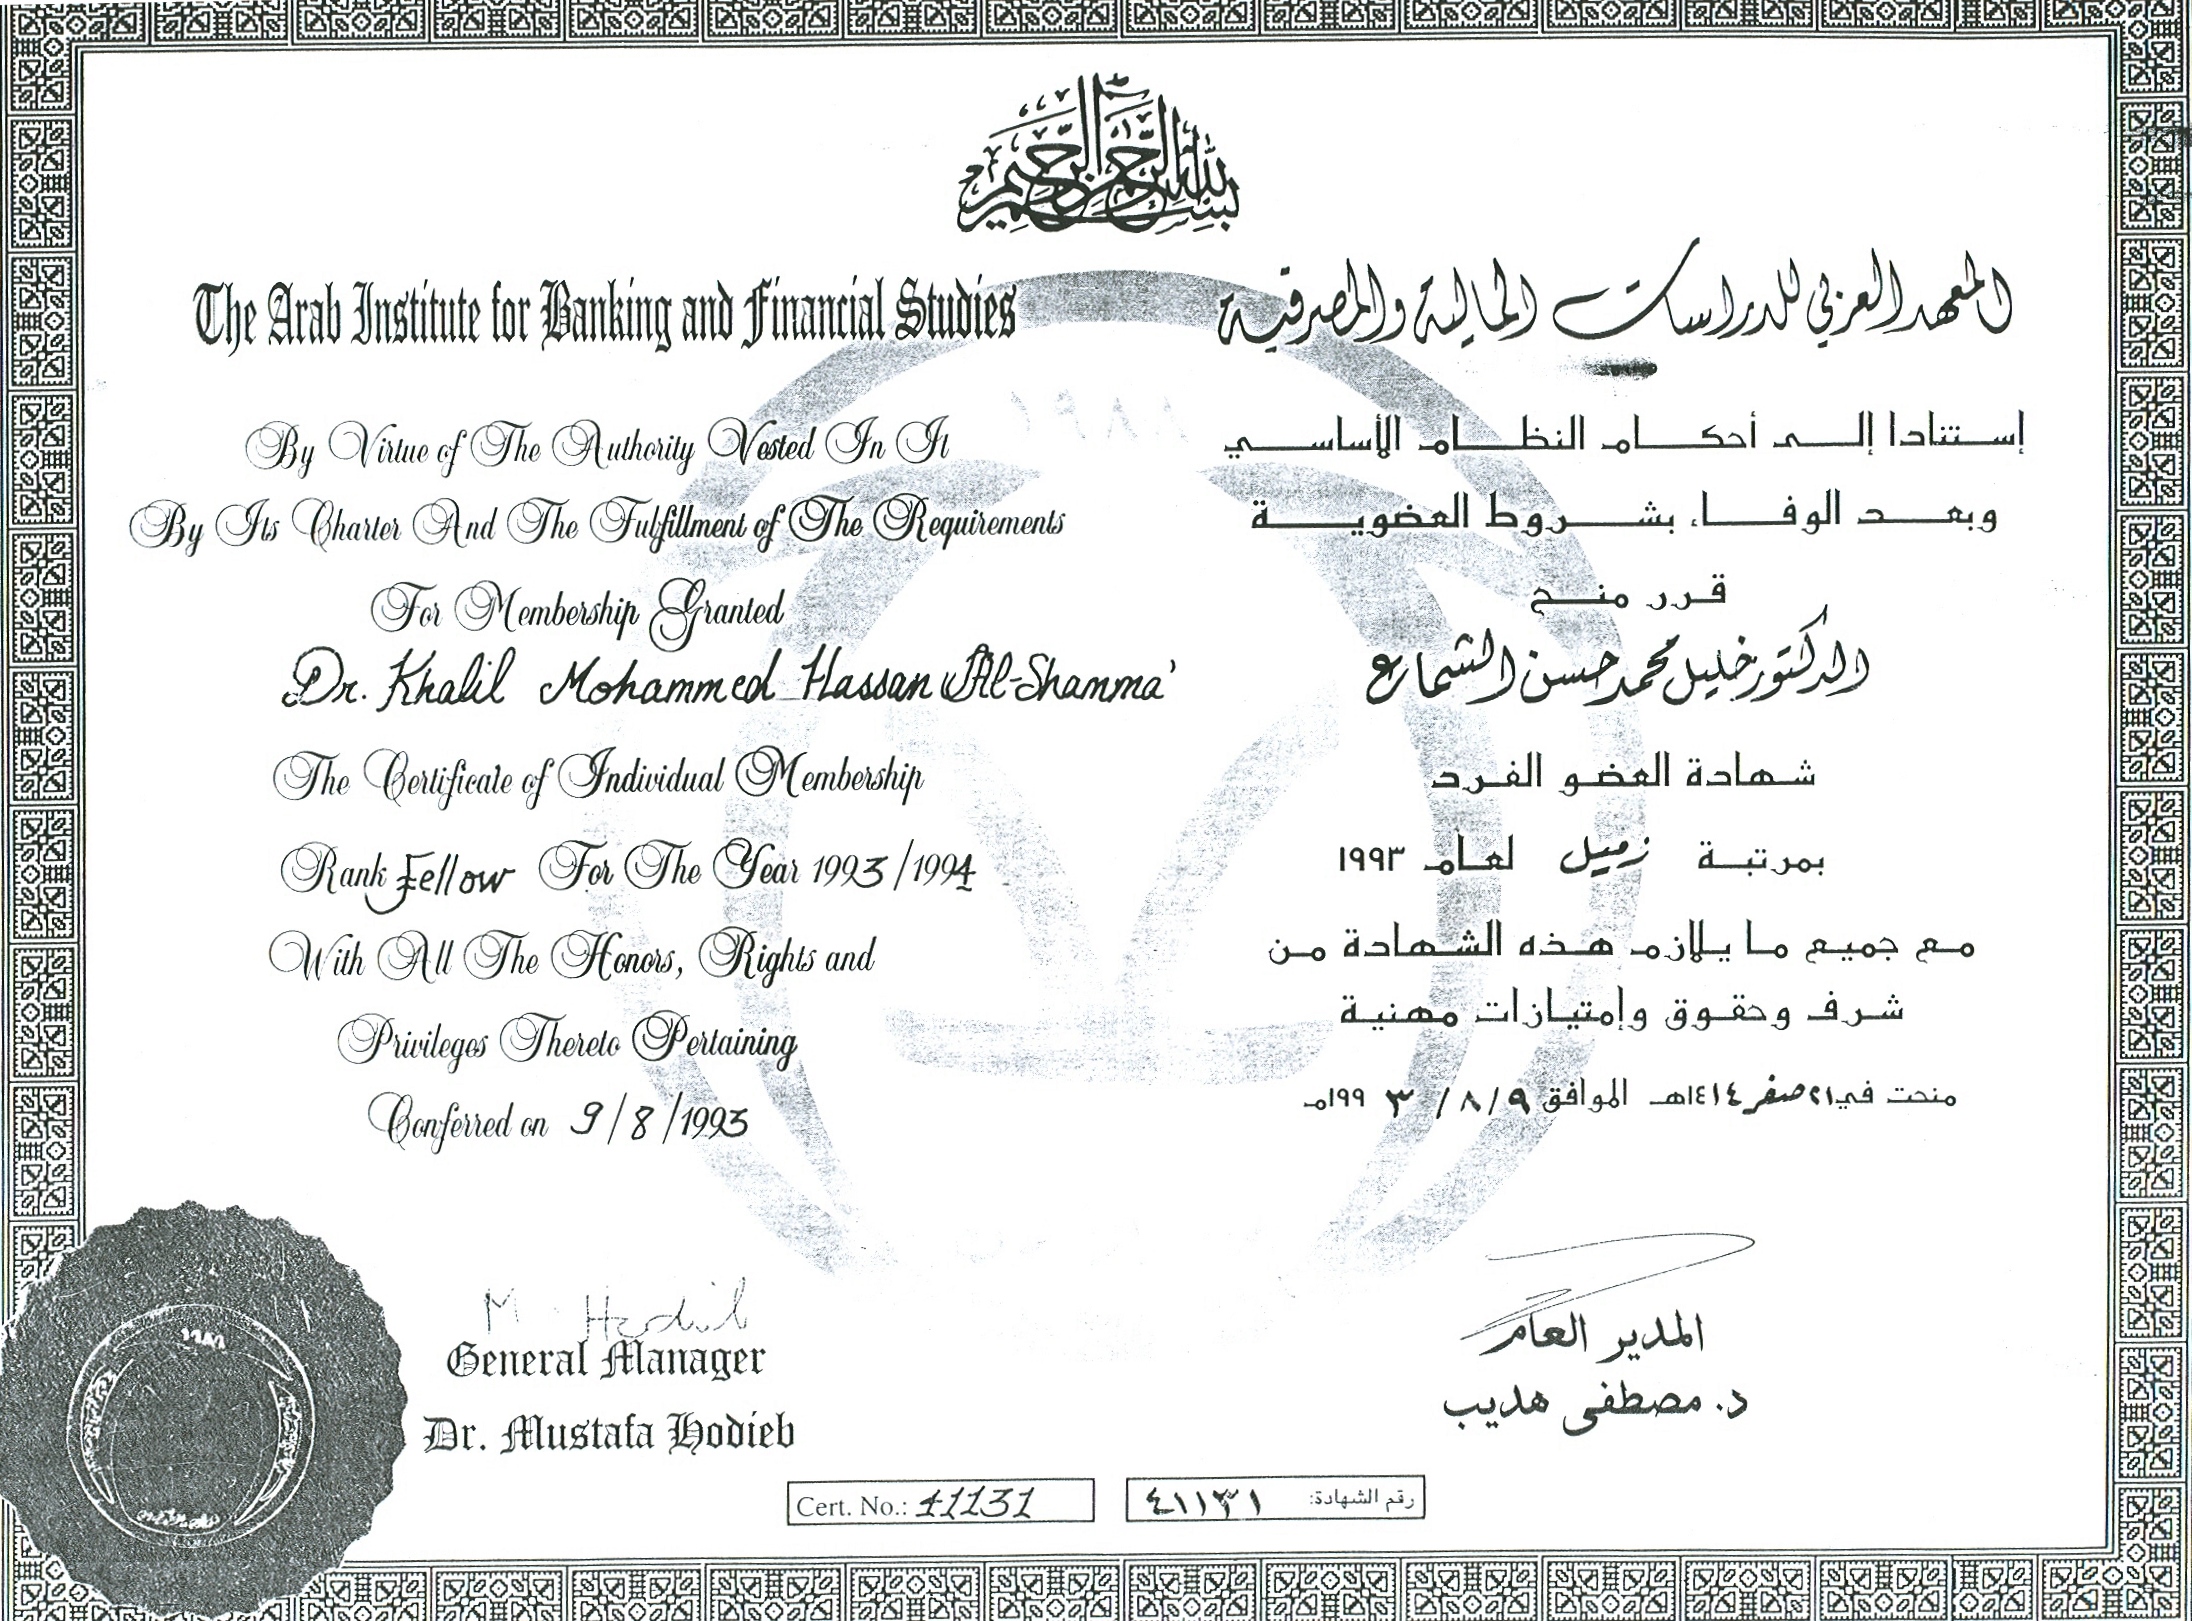 بسم الله الرحمن الرحيم
The Arab Institute for Banking and Financial Studies
By Virtue of The Authority Vested In It
By Its Charter And The Fulfillment of The Requirements
For Membership Granted
Dr. Khalil Mohammed Hassan Al-Shamma'
The Certificate of Individual Membership
Rank Fellow For The Year 1993/1994
With All The Honors, Rights and
Privileges Thereto Pertaining
Conferred on 9/8/1993
M. Hodieb
General Manager
Dr. Mustafa Hodieb
Cert. No.: 41131
المعهد العربي للدراسات المالية والمصرفية
إستنادا إلى أحكام النظام الأساسي
وبعد الوفاء بشروط العضوية
قرر منح
الدكتور خليل محمد حسن الشماع
شهادة العضو الفرد
بمرتبة زميل لعام ١٩٩٣
مع جميع ما يلازم هذه الشهادة من
شرف وحقوق وإمتيازات مهنية
منحت في ٢١ صفر ١٤١٤هـ الموافق ٩/٨/١٩٩٣م
المدير العام
د. مصطفى هديب
رقم الشهادة: ٤١١٣١